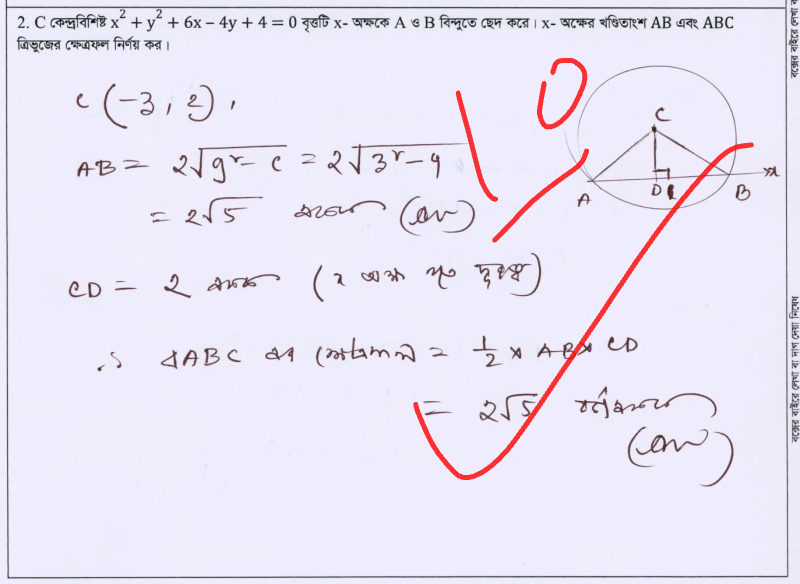 2. C কেন্দ্রবিশিষ্ট x² + y² + 6x − 4y + 4 = 0 বৃত্তটি x- অক্ষকে A ও B বিন্দুতে ছেদ করে। x- অক্ষের খণ্ডিতাংশ AB এবং ABC
ত্রিভুজের ক্ষেত্রফল নির্ণয় কর।
C (-3, 2),
10
AB = 2√g² - c = 2√3² - 4
= 2√5 একক (Ans)
C
A D B x
CD = 2 একক (x অক্ষ হতে দূরত্ব)
∴ ΔABC এর ক্ষেত্রফল = 1/2 × AB × CD
= 2√5 বর্গএকক
(Ans)
বক্সের বাইরে লেখা বা দাগ দেয়া নিষেধ